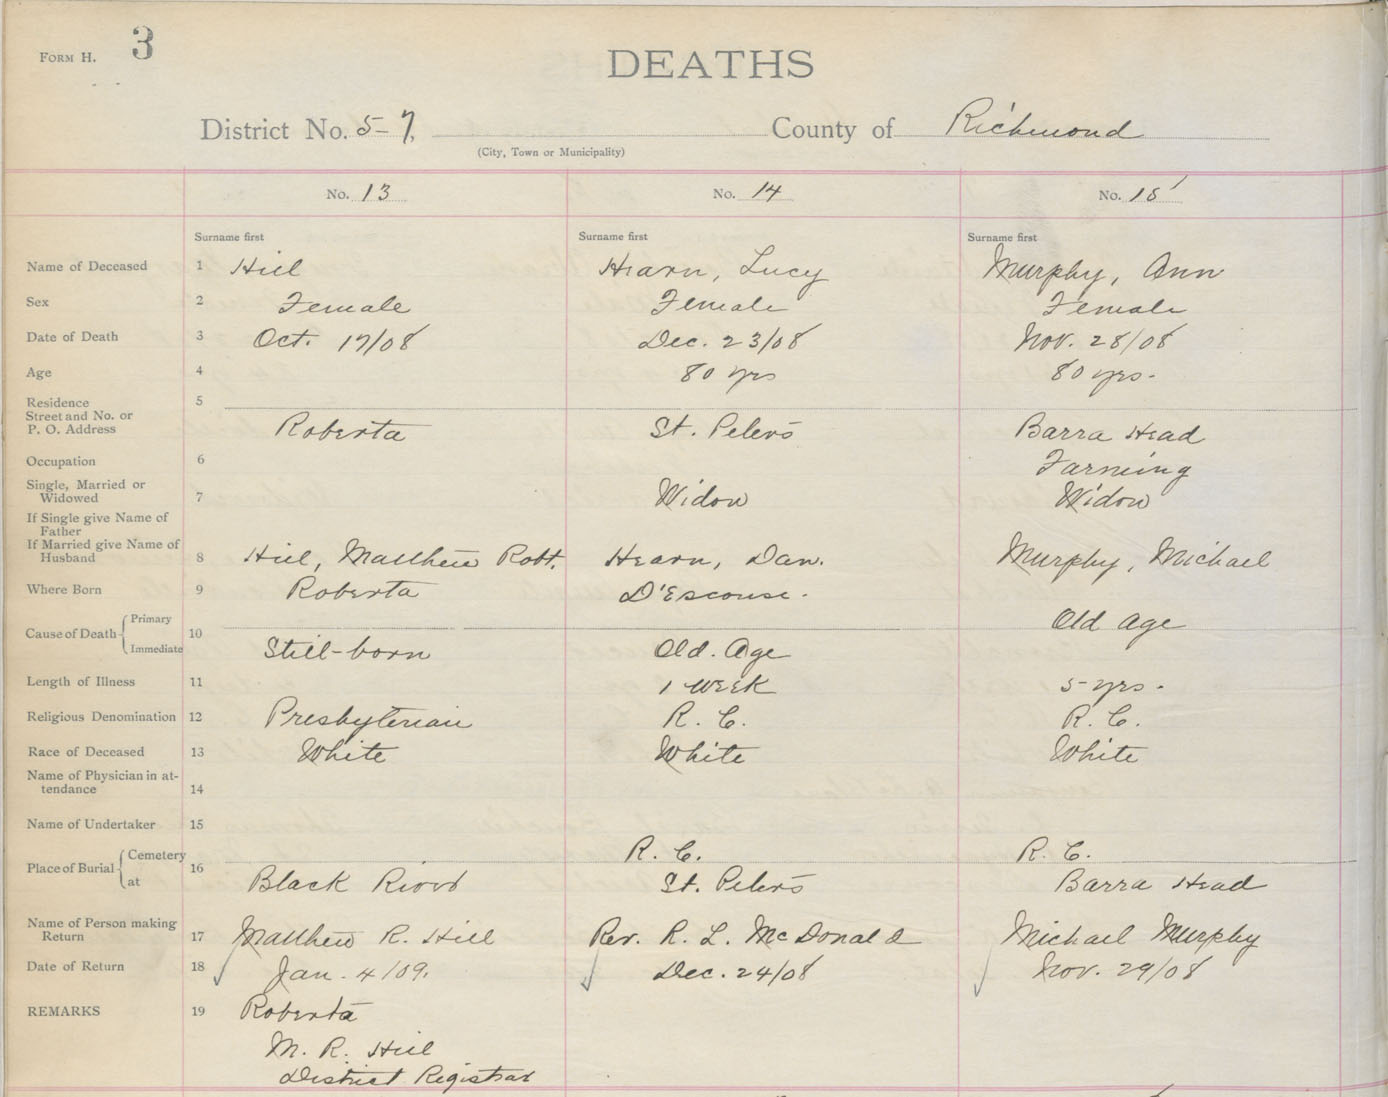 FORM H. 3
DEATHS
District No. 5-7. County of Richmond
(City, Town or Municipality)
No. 13 No. 14 No. 15
Surname first Surname first Surname first
Name of Deceased 1 Hill Hearn, Lucy Murphy, Ann
Sex 2 Female Female Female
Date of Death 3 Oct. 17/08 Dec. 23/08 Nov. 28/08
Age 4 80 yrs 80 yrs.
Residence 5
Street and No. or
P. O. Address Roberta St. Peter's Barra Head
Occupation 6 Farming
Single, Married or
Widowed 7 Widow Widow
If Single give Name of
Father
If Married give Name of
Husband 8 Hill, Matthew Robt. Hearn, Dan. Murphy, Michael
Where Born 9 Roberta D'Escouse.
Cause of Death Primary Old Age
10
Immediate Still-born Old. Age
Length of Illness 11 1 week 5 yrs.
Religious Denomination 12 Presbyterian R. C. R. C.
Race of Deceased 13 White White White
Name of Physician in at-
tendance 14
Name of Undertaker 15
Place of Burial Cemetery 16 R. C. R. C.
at Black River St. Peter's Barra Head
Name of Person making
Return 17 Matthew R. Hill Rev. R. L. McDonald Michael Murphy
Date of Return 18 Jan. 4/09. Dec. 24/08 Nov. 29/08
REMARKS 19 Roberta
M. R. Hill
District Registrar